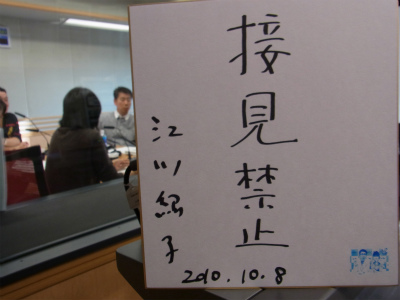 接見禁止
江川紹子
2010.10.8